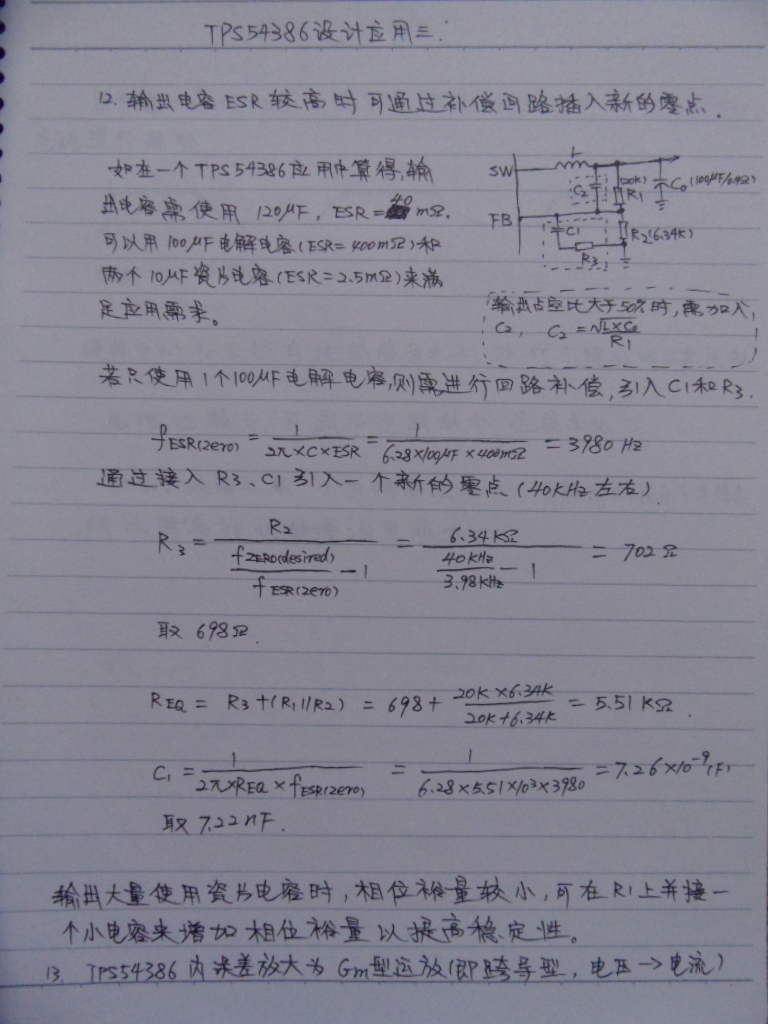 TPS54386设计应用三.
12. 输出电容ESR较高时可通过补偿回路插入新的零点.
如在一个TPS54386应用中算得,输
出电容需使用 120μF, ESR = 40 mΩ.
可以用100μF电解电容(ESR=400mΩ)和
两个10μF瓷片电容(ESR=2.5mΩ)来满
足应用需求。
SW L
C2 (20K) R1 C0(100μF/0.4Ω)
FB C1 R2(6.34K)
R3
输出占空比大于50%时,需加入
C2, C2 = √(L×C0) / R1
若只使用1个100μF电解电容,则需进行回路补偿,引入C1和R3.
fESR(zero) = 1 / (2π×C×ESR) = 1 / (6.28×100μF×400mΩ) = 3980 Hz
通过接入R3、C1引入一个新的零点(40KHz左右)
R3 = R2 / (fZERO(desired) / fESR(zero) - 1) = 6.34KΩ / (40KHz / 3.98KHz - 1) = 702Ω
取 698Ω.
REQ = R3+(R1//R2) = 698 + (20K×6.34K) / (20K+6.34K) = 5.51KΩ.
C1 = 1 / (2π×REQ×fESR(zero)) = 1 / (6.28×5.51×10³×3980) = 7.26×10⁻⁹(F)
取 7.22nF.
输出大量使用瓷片电容时,相位裕量较小,可在R1上并接一
个小电容来增加相位裕量以提高稳定性。
13. TPS54386内误差放大为Gm型运放(即跨导型,电压→电流)